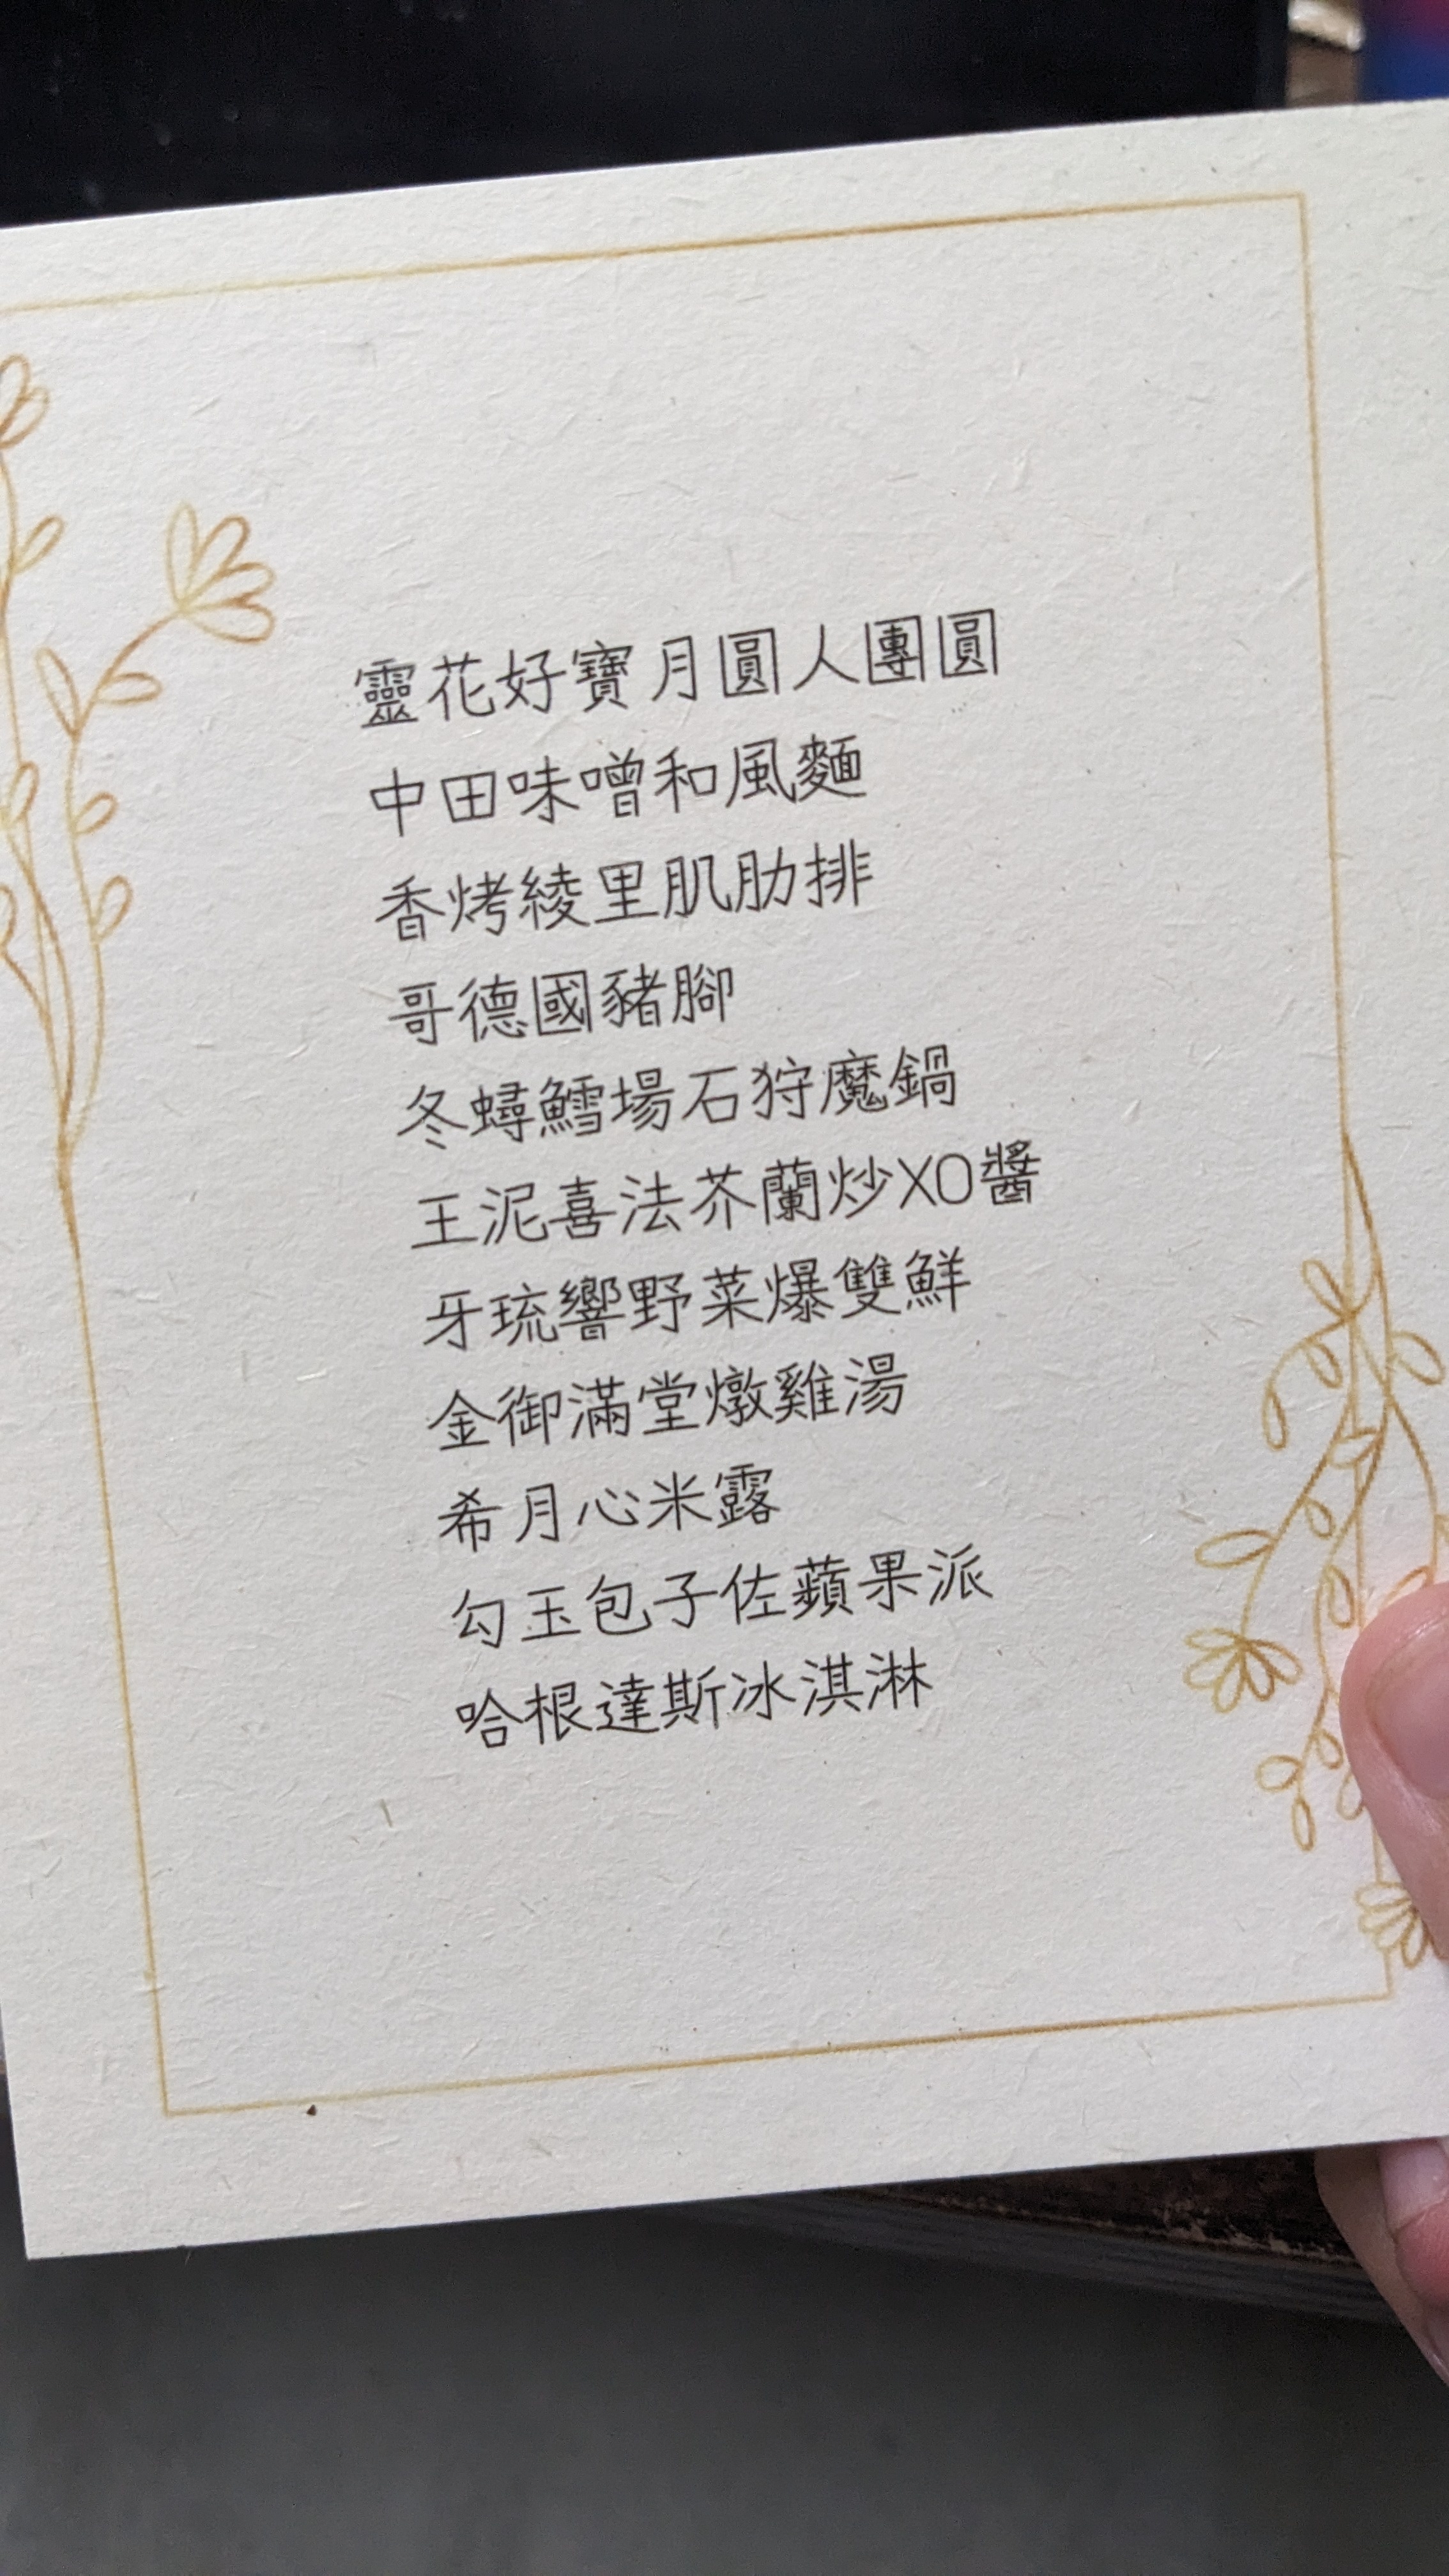 靈花好寶月圓人團圓
中田味噌和風麵
香烤綾里肌肋排
哥德國豬腳
冬蟳鱈場石狩魔鍋
王泥喜法芥蘭炒XO醬
牙琉響野菜爆雙鮮
金御滿堂燉雞湯
希月心米露
勾玉包子佐蘋果派
哈根達斯冰淇淋